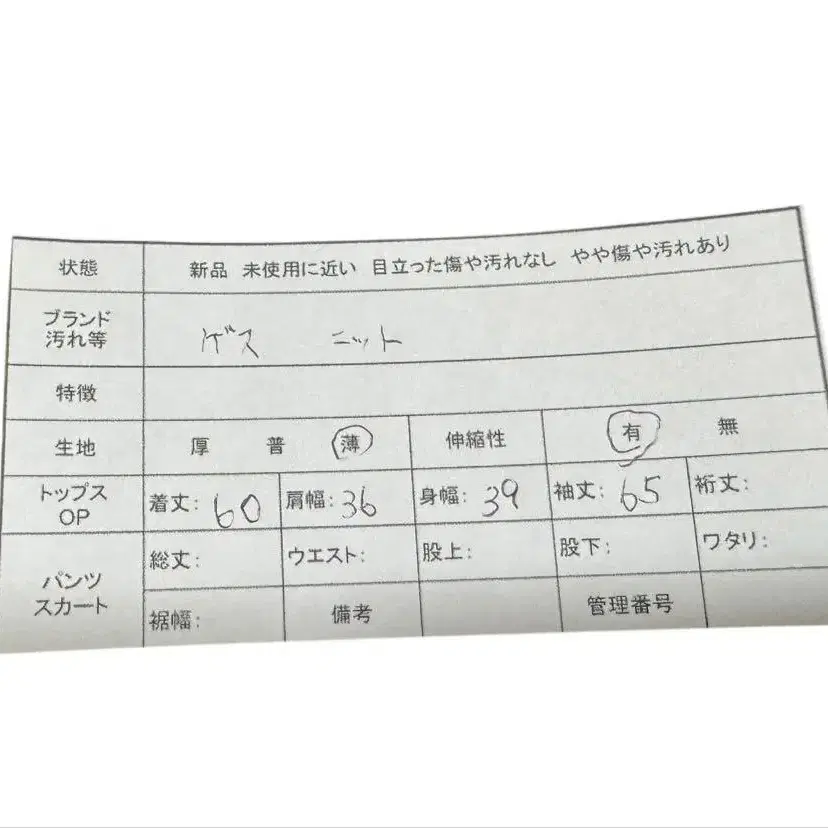 状態 新品 未使用に近い 目立った傷や汚れなし やや傷や汚れあり
ブランド
汚れ等 ゲス ニット
特徴
生地 厚 普 薄 伸縮性 有 無
トップス
OP 着丈: 60 肩幅: 36 身幅: 39 袖丈: 65 裄丈:
パンツ
スカート 総丈: ウエスト: 股上: 股下: ワタリ:
裾幅: 備考 管理番号